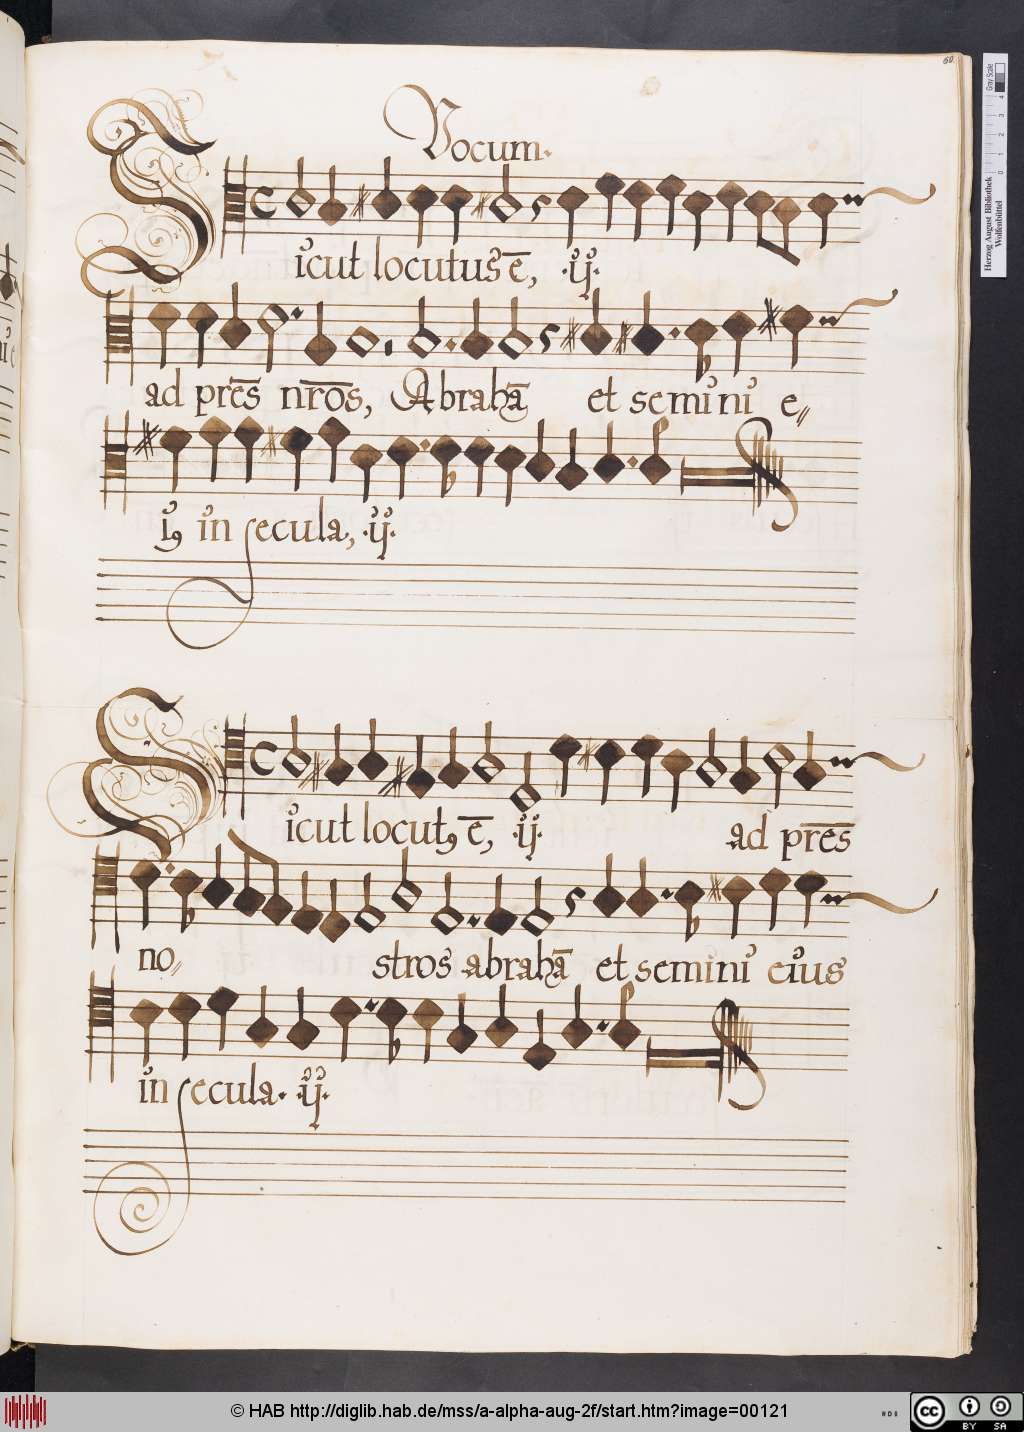 60.
Vocum.
Sicut locutus ē, .ij.
ad prēs nr̄os, Abrahā et semini e〃
iꝯ in secula, .ij.
Sicut locutꝯ ē, .ij. ad prēs
no〃 stros abrahā et semini eius
in secula. .ij.
Gray Scale
0 1 2 3 4
Herzog August Bibliothek
Wolfenbüttel
© HAB http://diglib.hab.de/mss/a-alpha-aug-2f/start.htm?image=00121
cc BY SA